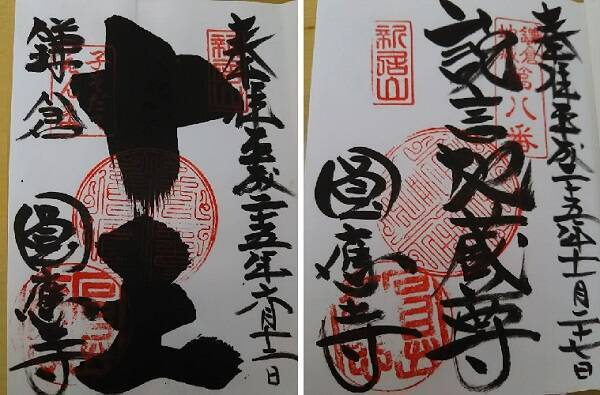 奉拝 平成二十五年六月十二日
新居山
十王
鎌倉
圓應寺
奉拝 平成二十五年十一月二十七日
鎌倉第八番
詫言地蔵尊
新居山
圓應寺